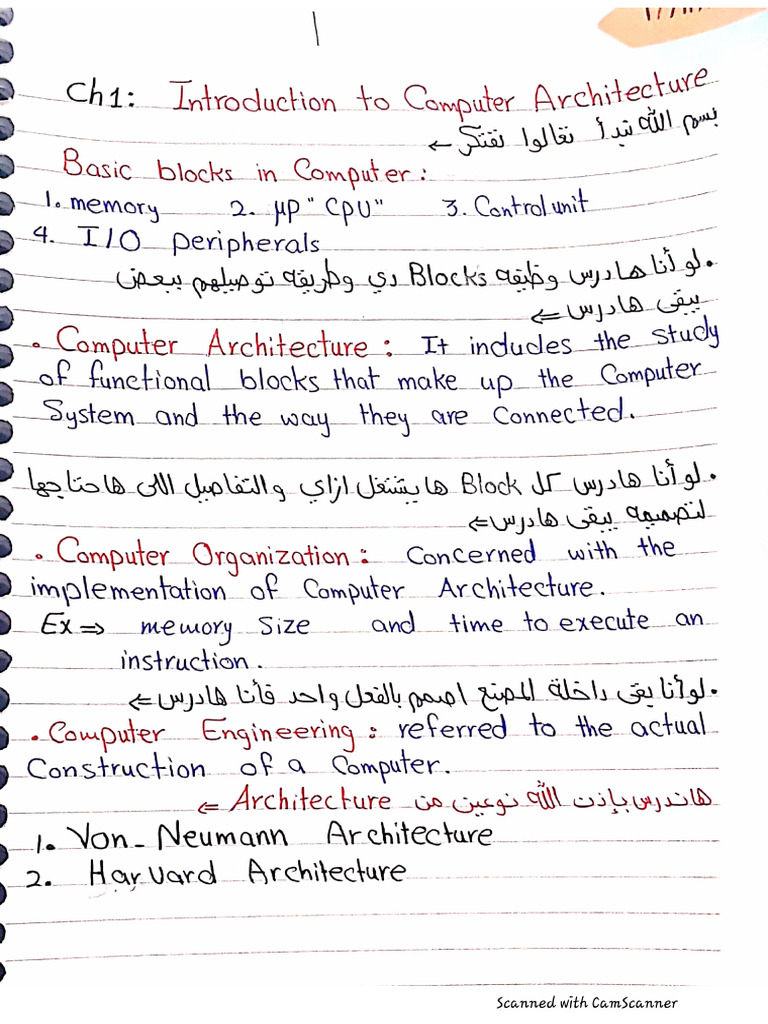 1
Ch1: Introduction to Computer Architecture
بسم الله نبدأ تعالوا نفتكر ←
Basic blocks in Computer:
1. memory 2. μP "CPU" 3. Control unit
4. I/O peripherals
• لو أنا هادرس وظيفه Blocks دي وطريقه توصيلهم ببعض
يبقى هادرس ⇐
• Computer Architecture: It includes the study
of functional blocks that make up the Computer
System and the way they are Connected.
• لو أنا هادرس كل Block هايشتغل ازاي والتفاصيل اللى هاحتاجها
لتصميمه يبقى هادرس ⇐
• Computer Organization: Concerned with the
implementation of Computer Architecture.
Ex ⇒ memory Size and time to execute an
instruction.
• لو أنا بقى داخلة المصنع اصمم بالفعل واحد فأنا هادرس ⇐
• Computer Engineering: referred to the actual
Construction of a Computer.
هاندرس بإذن الله نوعين من Architecture ⇐
1. Von-Neumann Architecture
2. Harvard Architecture
Scanned with CamScanner